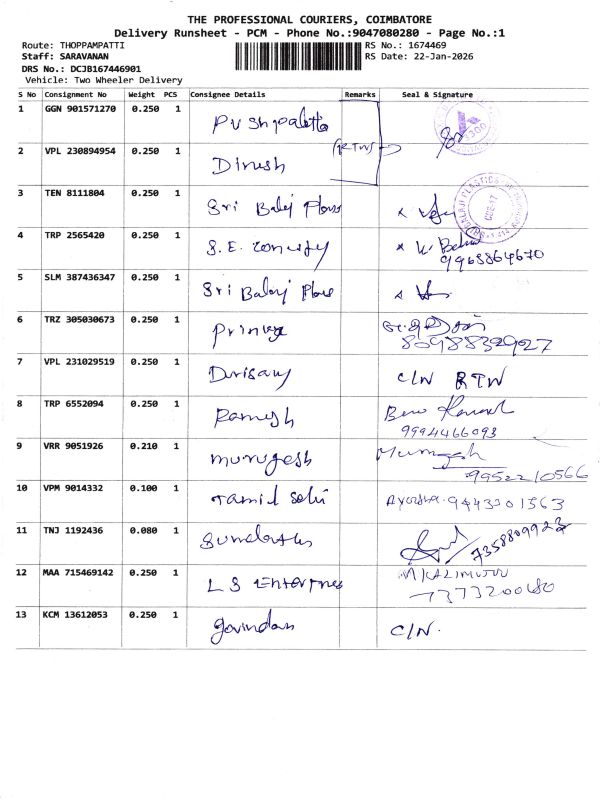 THE PROFESSIONAL COURIERS, COIMBATORE
Delivery Runsheet - PCM - Phone No.:9047080280 - Page No.:1
Route: THOPPAMPATTI
RS No.: 1674469
Staff: SARAVANAN
RS Date: 22-Jan-2026
DRS No.: DCJB167446901
Vehicle: Two Wheeler Delivery
S No Consignment No Weight PCS Consignee Details Remarks Seal & Signature
1 GGN 901571270 0.250 1
2 VPL 230894954 0.250 1 Dinesh (RTN)
3 TEN 8111804 0.250 1 Sri Balaj
4 TRP 2565420 0.250 1 S.E.
5 SLM 387436347 0.250 1 Sri Balaj
6 TRZ 305030673 0.250 1
7 VPL 231029519 0.250 1 C/N RTN
8 TRP 6552094 0.250 1 Ramesh
9994466093
9 VRR 9051926 0.210 1 murugesh Murugesh
9952210566
10 VPM 9014332 0.100 1 Tamil Selvi 9443201563
11 TNJ 1192436 0.080 1 7358809923
12 MAA 715469142 0.250 1 L S Enterprises M KALIMUTHU
7373200680
13 KCM 13612053 0.250 1 govindan C/N.